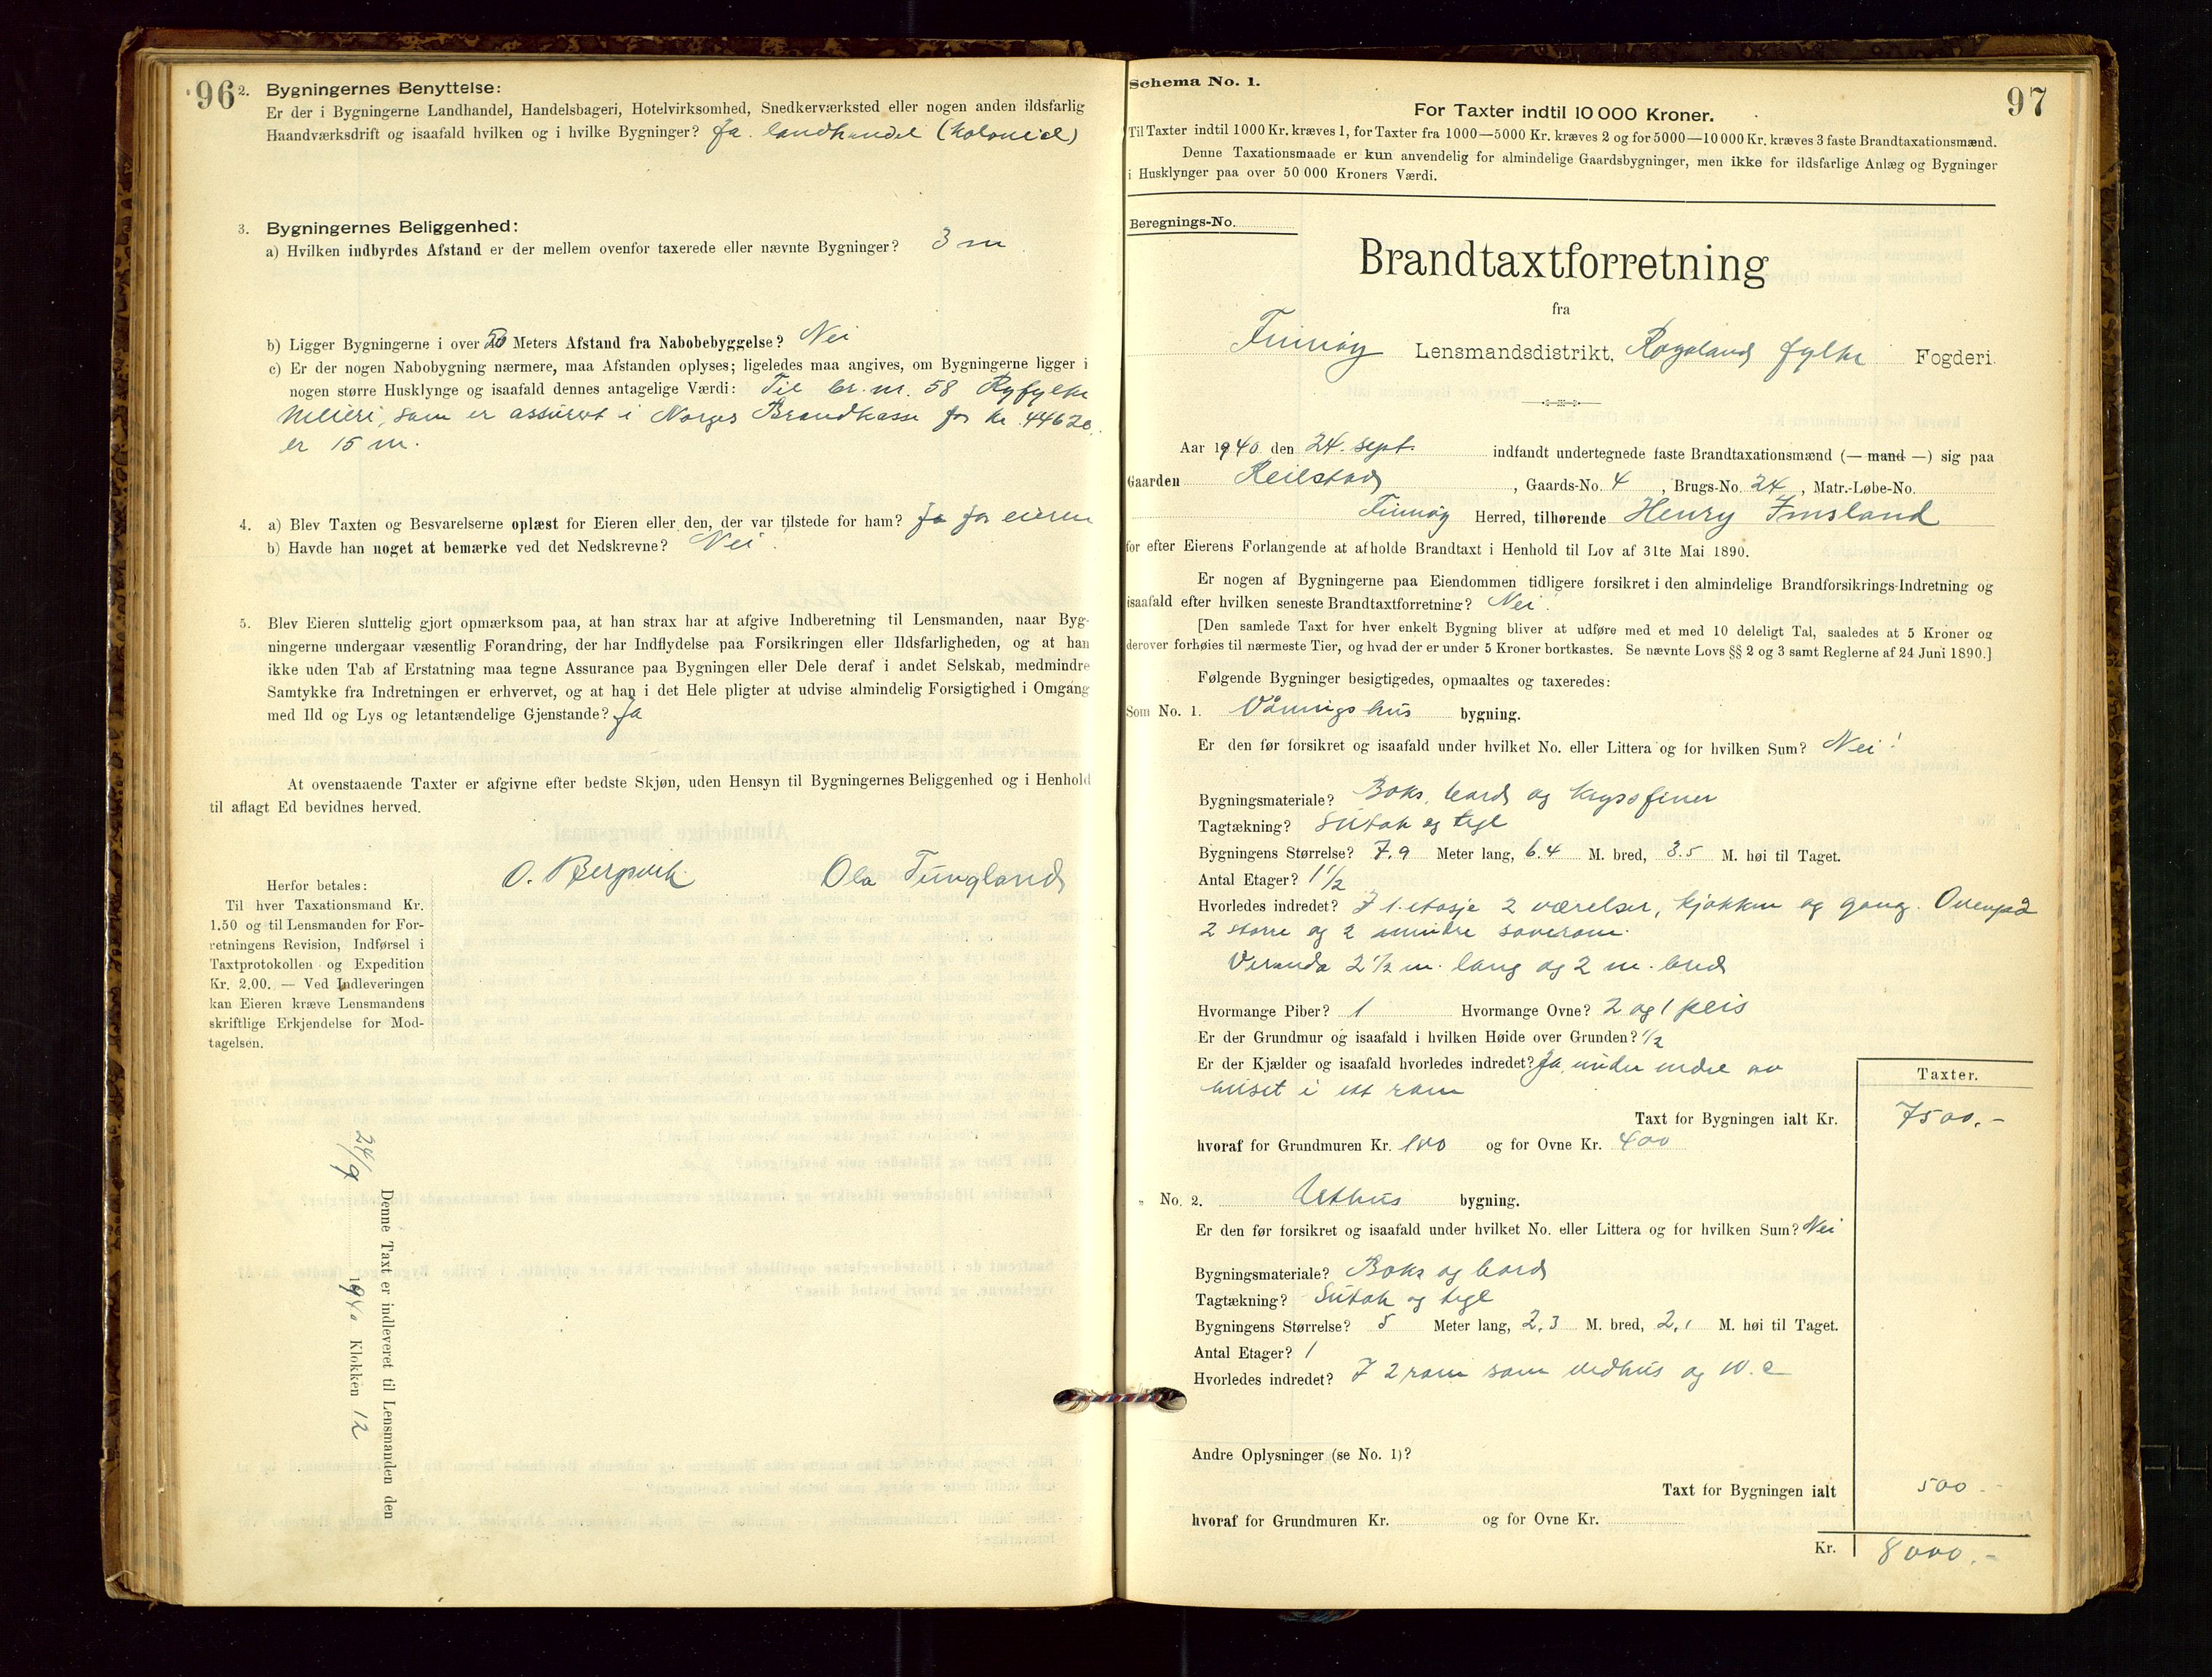 96
2. Bygningernes Benyttelse:
Er der i Bygningerne Landhandel, Handelsbageri, Hotelvirksomhed, Snedkerværksted eller nogen anden ildsfarlig
Haandværksdrift og isaafald hvilken og i hvilke Bygninger? Ja. landhandel (kolonial)
3. Bygningernes Beliggenhed:
a) Hvilken indbyrdes Afstand er der mellem ovenfor taxerede eller nævnte Bygninger? 3 m
b) Ligger Bygningerne i over 50 Meters Afstand fra Nabobebyggelse? Nei
c) Er der nogen Nabobygning nærmere, maa Afstanden oplyses; ligeledes maa angives, om Bygningerne ligger i
nogen større Husklynge og isaafald dennes antagelige Værdi: Til br. nr. 58 Ryfylke
Meieri, som er assurert i Norges Brandkasse for kr. 44620.
er 15 m.
4. a) Blev Taxten og Besvarelserne oplæst for Eieren eller den, der var tilstede for ham? Ja for eieren
b) Havde han noget at bemærke ved det Nedskrevne? Nei.
5. Blev Eieren sluttelig gjort opmærksom paa, at han strax har at afgive Indberetning til Lensmanden, naar Byg-
ningerne undergaar væsentlig Forandring, der har Indflydelse paa Forsikringen eller Ildsfarligheden, og at han
ikke uden Tab af Erstatning maa tegne Assurance paa Bygningen eller Dele deraf i andet Selskab, medmindre
Samtykke fra Indretningen er erhvervet, og at han i det Hele pligter at udvise almindelig Forsigtighed i Omgang
med Ild og Lys og letantændelige Gjenstande? Ja
At ovenstaaende Taxter er afgivne efter bedste Skjøn, uden Hensyn til Bygningernes Beliggenhed og i Henhold
til aflagt Ed bevidnes herved.
O. Bergsvik Ola Tungland
Herfor betales:
Til hver Taxationsmand Kr.
1.50 og til Lensmanden for For-
retningens Revision, Indførsel i
Taxtprotokollen og Expedition
Kr. 2.00. — Ved Indleveringen
kan Eieren kræve Lensmandens
skriftlige Erkjendelse for Mod-
tagelsen.
Denne Taxt er indleveret til Lensmanden den
24/9 1940 Klokken 12
Schema No. 1.
97
For Taxter indtil 10 000 Kroner.
Til Taxter indtil 1000 Kr. kræves 1, for Taxter fra 1000—5000 Kr. kræves 2 og for 5000—10 000 Kr. kræves 3 faste Brandtaxationsmænd.
Denne Taxationsmaade er kun anvendelig for almindelige Gaardsbygninger, men ikke for ildsfarlige Anlæg og Bygninger
i Husklynger paa over 50 000 Kroners Værdi.
Beregnings-No.
Brandtaxtforretning
fra
Finnøy Lensmandsdistrikt, Rogaland fylke Fogderi.
Aar 1940 den 24. sept. indfandt undertegnede faste Brandtaxationsmænd (— mand —) sig paa
Gaarden Reilstad, Gaards-No. 4, Brugs-No. 24, Matr.-Løbe-No.
Finnøy Herred, tilhørende Henry Imsland
for efter Eierens Forlangende at afholde Brandtaxt i Henhold til Lov af 31te Mai 1890.
Er nogen af Bygningerne paa Eiendommen tidligere forsikret i den almindelige Brandforsikrings-Indretning og
isaafald efter hvilken seneste Brandtaxtforretning? Nei.
[Den samlede Taxt for hver enkelt Bygning bliver at udføre med et med 10 deleligt Tal, saaledes at 5 Kroner og
derover forhøies til nærmeste Tier, og hvad der er under 5 Kroner bortkastes. Se nævnte Lovs §§ 2 og 3 samt Reglerne af 24 Juni 1890.]
Følgende Bygninger besigtigedes, opmaaltes og taxeredes:
Som No. 1. Våningshus bygning.
Er den før forsikret og isaafald under hvilket No. eller Littera og for hvilken Sum? Nei!
Bygningsmateriale? Boks, bord og kryssfiner
Tagtækning? Sutak og tegl
Bygningens Størrelse? 7.9 Meter lang, 6.4 M. bred, 3.5 M. høi til Taget.
Antal Etager? 1 1/2
Hvorledes indredet? I 1. etasje 2 værelser, kjøkken og gang. Ovenpå
2 større og 2 mindre soverom.
Veranda 2 1/2 m. lang og 2 m. bred
Hvormange Piber? 1 Hvormange Ovne? 2 og 1 peis
Er der Grundmur og isaafald i hvilken Høide over Grunden? 1/2
Er der Kjælder og isaafald hvorledes indredet? Ja, under av
huset i ett rom
Taxter.
Taxt for Bygningen ialt Kr. 7500.-
hvoraf for Grundmuren Kr. 100 og for Ovne Kr. 400
„ No. 2. Uthus bygning.
Er den før forsikret og isaafald under hvilket No. eller Littera og for hvilken Sum? Nei
Bygningsmateriale? Boks og bord
Tagtækning? Sutak og tegl
Bygningens Størrelse? 5 Meter lang, 2,3 M. bred, 2,1 M. høi til Taget.
Antal Etager? 1
Hvorledes indredet? I 2 rom som vedhus og W.c
Andre Oplysninger (se No. 1)?
Taxt for Bygningen ialt 500.-
hvoraf for Grundmuren Kr. og for Ovne Kr.
Kr. 8000.-